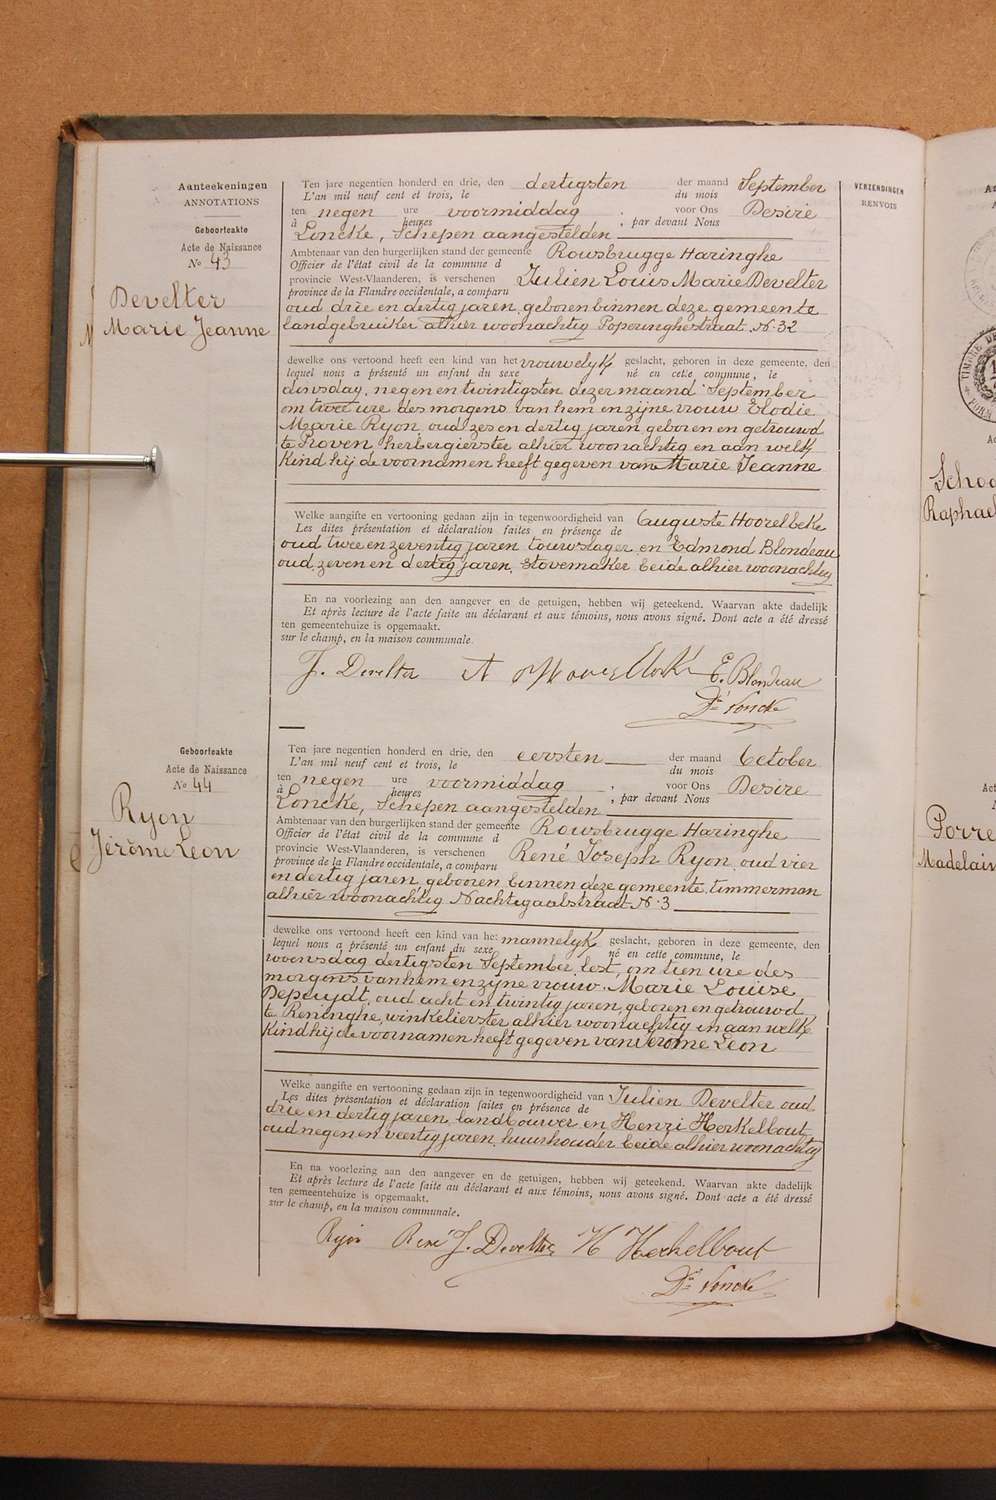 Aanteekeningen
ANNOTATIONS
Geboorteakte
Acte de Naissance
No 43
Develter
Marie Jeanne
VERZENDINGEN
RENVOIS
Ten jare negentien honderd en drie, den dertigsten der maand September
L'an mil neuf cent et trois, le du mois
ten negen ure voormiddag , voor Ons Desiré
à heures , par devant Nous
Loncke, Schepen aangestelden
Ambtenaar van den burgerlijken stand der gemeente Rousbrugge Haringhe
Officier de l'état civil de la commune d
provincie West-Vlaanderen, is verschenen Julien Louis Marie Develter
province de la Flandre occidentale, a comparu
oud drie en dertig jaren, geboren binnen deze gemeente
landgebruiker alhier woonachtig Poperinghestraat No 32
dewelke ons vertoond heeft een kind van het vrouwelyk geslacht, geboren in deze gemeente, den
lequel nous a présenté un enfant du sexe né en cette commune, le
dinsdag, negen en twintigsten dezer maand September
om twee ure des morgens van hem en zijne vrouw Elodie
Marie Ryon oud zes en dertig jaren, geboren en getrouwd
te Proven herbergierster alhier woonachtig en aan welk
kind hij de voornamen heeft gegeven van Marie Jeanne
Welke aangifte en vertooning gedaan zijn in tegenwoordigheid van Auguste Hoorelbeke
Les dites présentation et déclaration faites en présence de
oud twee en zeventig jaren touwslager en Edmond Blondeau
oud zeven en dertig jaren, stovemaker beide alhier woonachtig
En na voorlezing aan den aangever en de getuigen, hebben wij geteekend. Waarvan akte dadelijk
Et après lecture de l'acte faite au déclarant et aux témoins, nous avons signé. Dont acte a été dressé
ten gemeentehuize is opgemaakt.
sur le champ, en la maison communale.
J. Develter A E. Blondeau
Dé Loncke
Geboorteakte
Acte de Naissance
No 44
Ryon
Jérôme Leon
Ten jare negentien honderd en drie, den eersten der maand October
L'an mil neuf cent et trois, le du mois
ten negen ure voormiddag , voor Ons Desiré
à heures , par devant Nous
Loncke, Schepen aangestelden
Ambtenaar van den burgerlijken stand der gemeente Rousbrugge Haringhe
Officier de l'état civil de la commune d
provincie West-Vlaanderen, is verschenen René Joseph Ryon oud vier
province de la Flandre occidentale, a comparu
en dertig jaren, gebooren binnen deze gemeente, timmerman
alhier woonachtig Nachtegaalstraat No 3
dewelke ons vertoond heeft een kind van het mannelyk geslacht, geboren in deze gemeente, den
lequel nous a présenté un enfant du sexe né en cette commune, le
woensdag dertigsten September lest, om tien ure des
morgens van hem en zijne vrouw Marie Louise
Depuydt, oud acht en twintig jaren, geboren en getrouwd
te Reninghe, winkelierster alhier woonachtig en aan welk
kind hij de voornamen heeft gegeven van Jerome Leon
Welke aangifte en vertooning gedaan zijn in tegenwoordigheid van Julien Develter oud
Les dites présentation et déclaration faites en présence de
drie en dertig jaren, landbouwer en Henri Herkelbout
oud negen en veertig jaren, huishouder beide alhier woonachtig
En na voorlezing aan den aangever en de getuigen, hebben wij geteekend. Waarvan akte dadelijk
Et après lecture de l'acte faite au déclarant et aux témoins, nous avons signé. Dont acte a été dressé
ten gemeentehuize is opgemaakt.
sur le champ, en la maison communale.
Ryon René J. Develter H Herkelbout
Dé Loncke